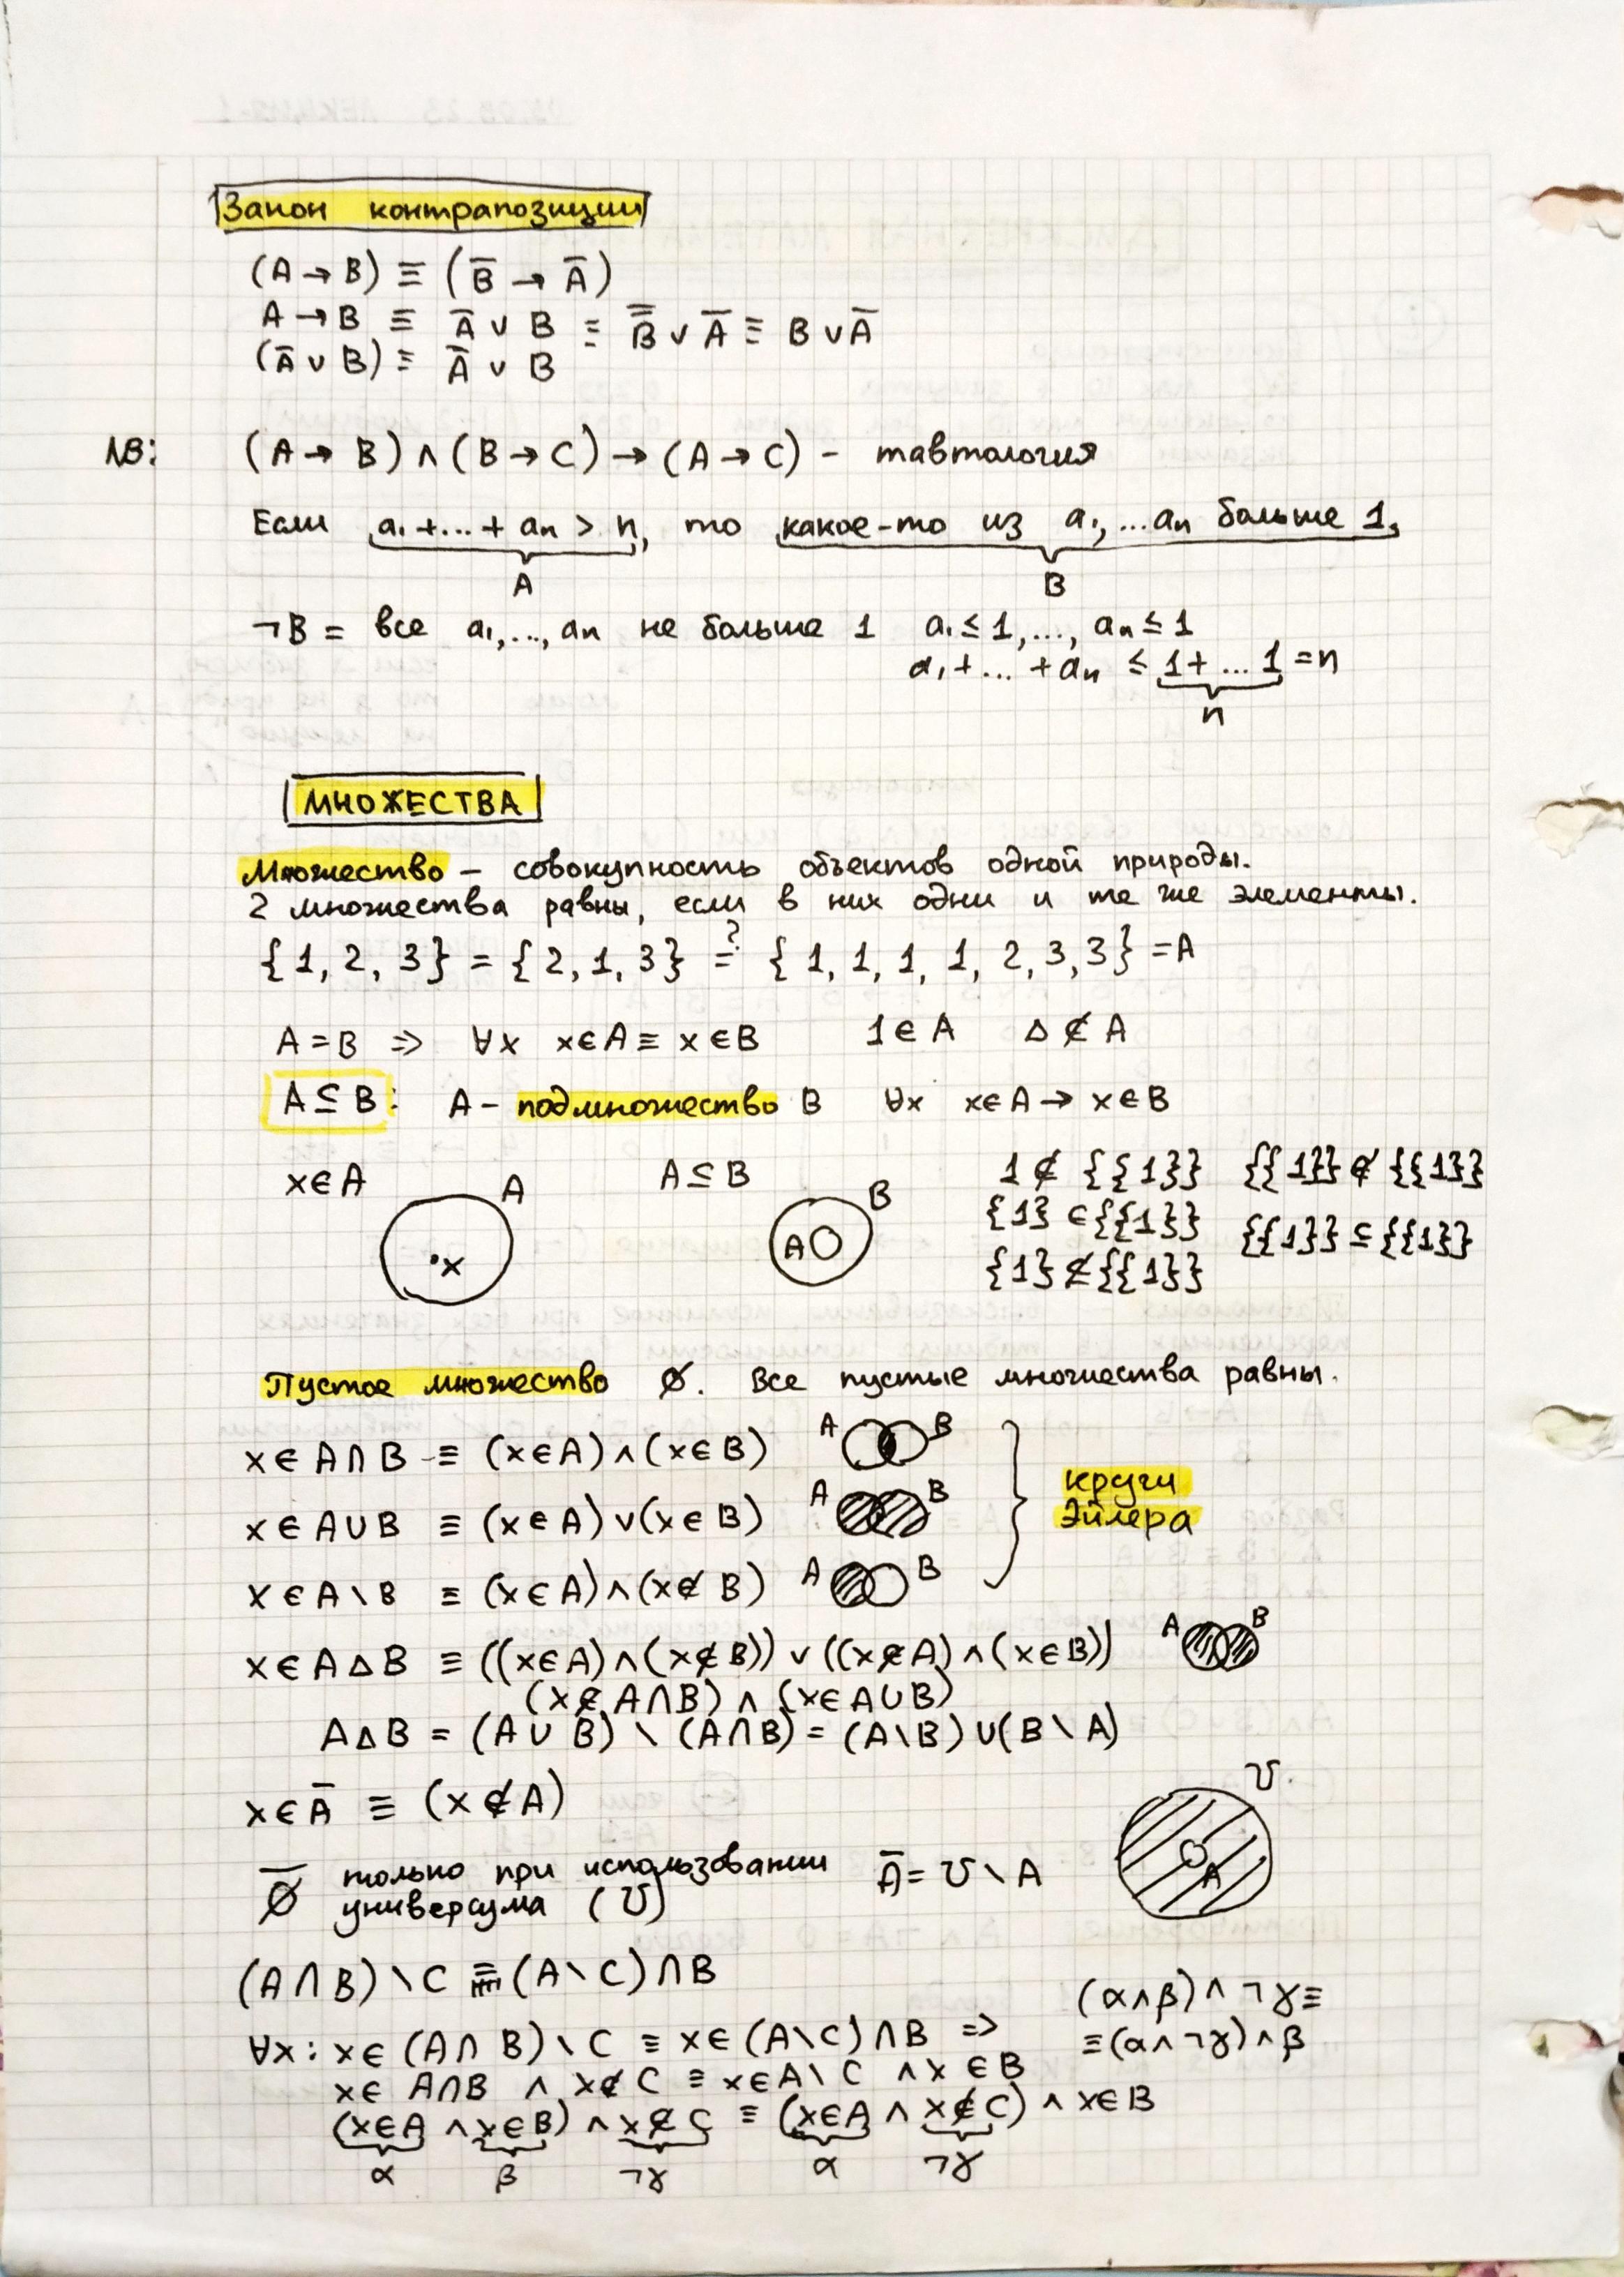 Закон контрапозиции
(A → B) ≡ (B̅ → A̅)
A → B ≡ A̅ ∨ B ≡ B̿ ∨ A̅ ≡ B ∨ A̅
(A̅ ∨ B) ≡ A̅ ∨ B
NB: (A → B) ∧ (B → C) → (A → C) - тавтология
Если a₁ + ... + aₙ > n, то какое-то из a₁, ... aₙ больше 1,
A B
¬B = все a₁, ..., aₙ не больше 1 a₁ ≤ 1, ..., aₙ ≤ 1
a₁ + ... + aₙ ≤ 1 + ... 1 = n
n
МНОЖЕСТВА
Множество - совокупность объектов одной природы.
2 множества равны, если в них одни и те же элементы.
{1, 2, 3} = {2, 1, 3} =? {1, 1, 1, 1, 2, 3, 3} = A
A = B => ∀x x ∈ A ≡ x ∈ B 1 ∈ A Δ ∉ A
A ⊆ B: A - подмножество B ∀x x ∈ A → x ∈ B
x ∈ A A A ⊆ B B 1 ∉ {{1}} {{1}} ∉ {{1}}
{1} ∈ {{1}} {{1}} ⊆ {{1}}
•x A
{1} ⊈ {{1}}
Пустое множество ∅. Все пустые множества равны.
x ∈ A ∩ B ≡ (x ∈ A) ∧ (x ∈ B) A B
круги
x ∈ A ∪ B ≡ (x ∈ A) ∨ (x ∈ B) A B
Эйлера
x ∈ A \ B ≡ (x ∈ A) ∧ (x ∉ B) A B
x ∈ A Δ B ≡ ((x ∈ A) ∧ (x ∉ B)) ∨ ((x ∉ A) ∧ (x ∈ B)) A B
(x ∉ A ∩ B) ∧ (x ∈ A ∪ B)
A Δ B = (A ∪ B) \ (A ∩ B) = (A \ B) ∪ (B \ A)
x ∈ A̅ ≡ (x ∉ A) U
∅̅ только при использовании A̅ = U \ A A
универсума (U)
(A ∩ B) \ C ≡ (A \ C) ∩ B
(α ∧ β) ∧ ¬γ ≡
∀x: x ∈ (A ∩ B) \ C ≡ x ∈ (A \ C) ∩ B => ≡ (α ∧ ¬γ) ∧ β
x ∈ A ∩ B ∧ x ∉ C ≡ x ∈ A \ C ∧ x ∈ B
(x ∈ A ∧ x ∈ B) ∧ x ∉ C ≡ (x ∈ A ∧ x ∉ C) ∧ x ∈ B
α β ¬γ α ¬γ